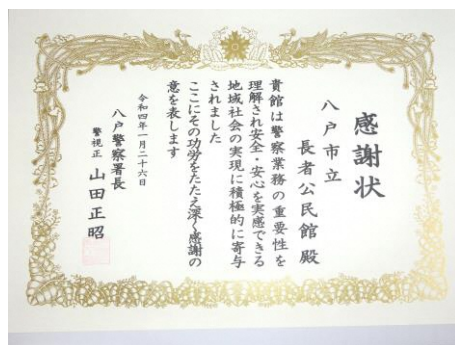 感謝状
八戸市立
長者公民館殿
貴館は警察業務の重要性を
理解され安全・安心を実感できる
地域社会の実現に積極的に寄与
されました
ここにその功労をたたえ深く感謝の
意を表します
令和四年一月二十六日
八戸警察署長
警視正 山田正昭